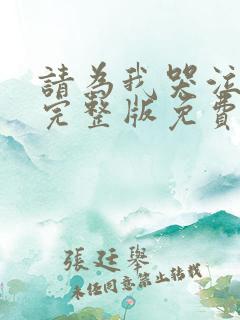 請為我哭泣
完整版免費
張廷舉
未經同意禁止轉載